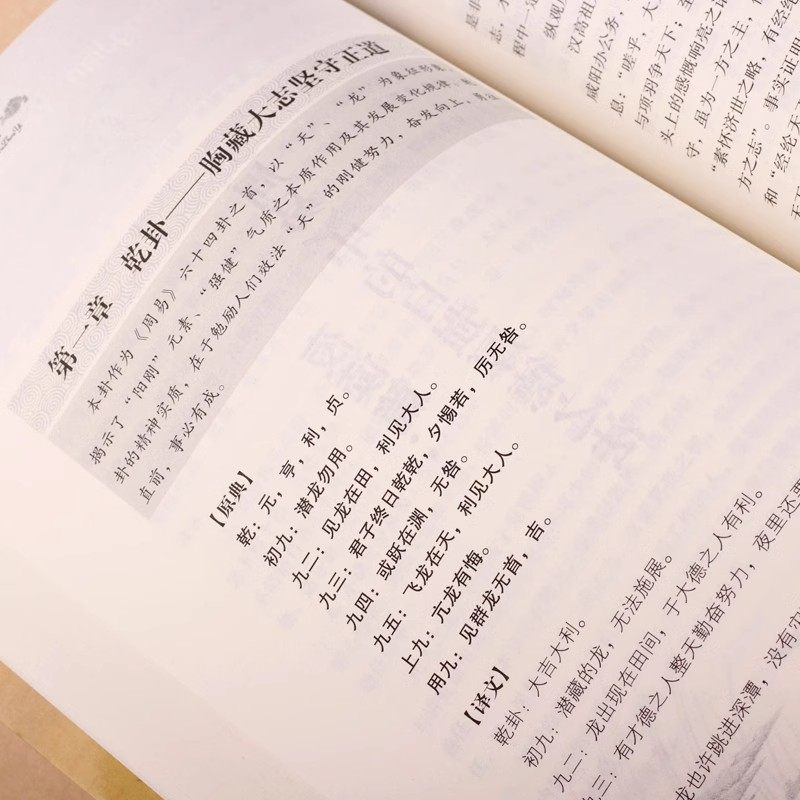 第一章 乾卦——胸藏大志坚守正道
本卦作为《周易》六十四卦之首，以“天”、“龙”为象征形象，
揭示了“阳刚”元素、“强健”气质之本质作用及其发展变化规律，
卦的精神实质，在于勉励人们效法“天”的刚健努力，奋发向上，勇往
直前，事必有成。
【原典】
乾：元，亨，利，贞。
初九：潜龙勿用。
九二：见龙在田，利见大人。
九三：君子终日乾乾，夕惕若，厉无咎。
九四：或跃在渊，无咎。
九五：飞龙在天，利见大人。
上九：亢龙有悔。
用九：见群龙无首，吉。
【译文】
乾卦：大吉大利。
初九：潜藏的龙，无法施展。
九二：龙出现在田间，于大德之人有利。
九三：有才德之人整天勤奋努力，夜里还要
龙也许跳进深潭，没有
是非
志，
程中一
纵观
汉高祖
咸阳办公务，
息：“嗟乎，大
与项羽争天下；至
头上的感慨响亮之
守，虽为一方之主，
“素怀济世之略，有经纶
方之志”。事实证明
和“经纶天